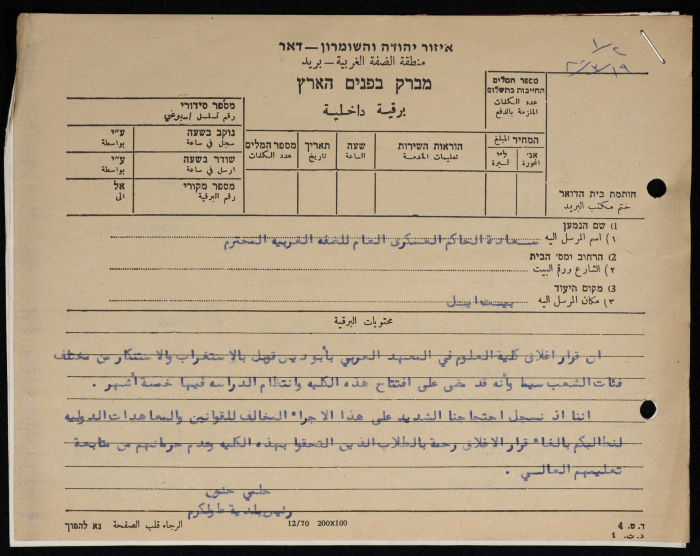 איזור יהודה והשומרון – דאר
منطقة الضفة الغربية – بريد
מברק בפנים הארץ
برقية داخلية
מספר המלים החייבות בתשלום
عدد الكلمات الملزمة بالدفع
המחיר המבלغ
אג' أغورة
ל"י ليرة
הוראות השירות
تعليمات الخدمة
שעה
الساعة
תאריך
تاريخ
מספר המלים
عدد الكلمات
מספר סידורי
رقم تسلسل
נוקב בשעה
سجل في ساعة
ע"י
بواسطة
שודר בשעה
ارسل في ساعة
ע"י
بواسطة
מספר מקורי
رقم البرقية
אל
الى
חותמת בית הדואר
ختم مكتب البريد
1) שם הנמען
١) اسم المرسل اليه سعادة الحاكم العسكري العام للضفه الغربيه المحترم
2) הרחוב ומס' הבית
٢) الشارع ورقم البيت
3) מקום היעוד
٣) مكان المرسل اليه بيت ايل
محتويات البرقية
ان قرار اغلاق كلية العلوم في المعهد العربي بأبوديس قوبل بالاستغراب والاستنكار من مختلف
فئات الشعب سيما وأنه قد مضى على افتتاح هذه الكليه وانتظام الدراسه فيها خمسة أشهر .
اننا اذ نسجل احتجاجنا الشديد على هذا الاجراء المخالف للقوانين والمعاهدات الدوليه
لنطالبكم بالغاء قرار الاغلاق رحمة بالطلاب الذين التحقوا بهذه الكليه وعدم حرمانهم من متابعة
تعليمهم العالي .
حلمي حنون
رئيس بلدية طولكرم
ד.ס. 4
د.ت. ٤
12/70 200X100
الرجاء قلب الصفحة נא להפוך